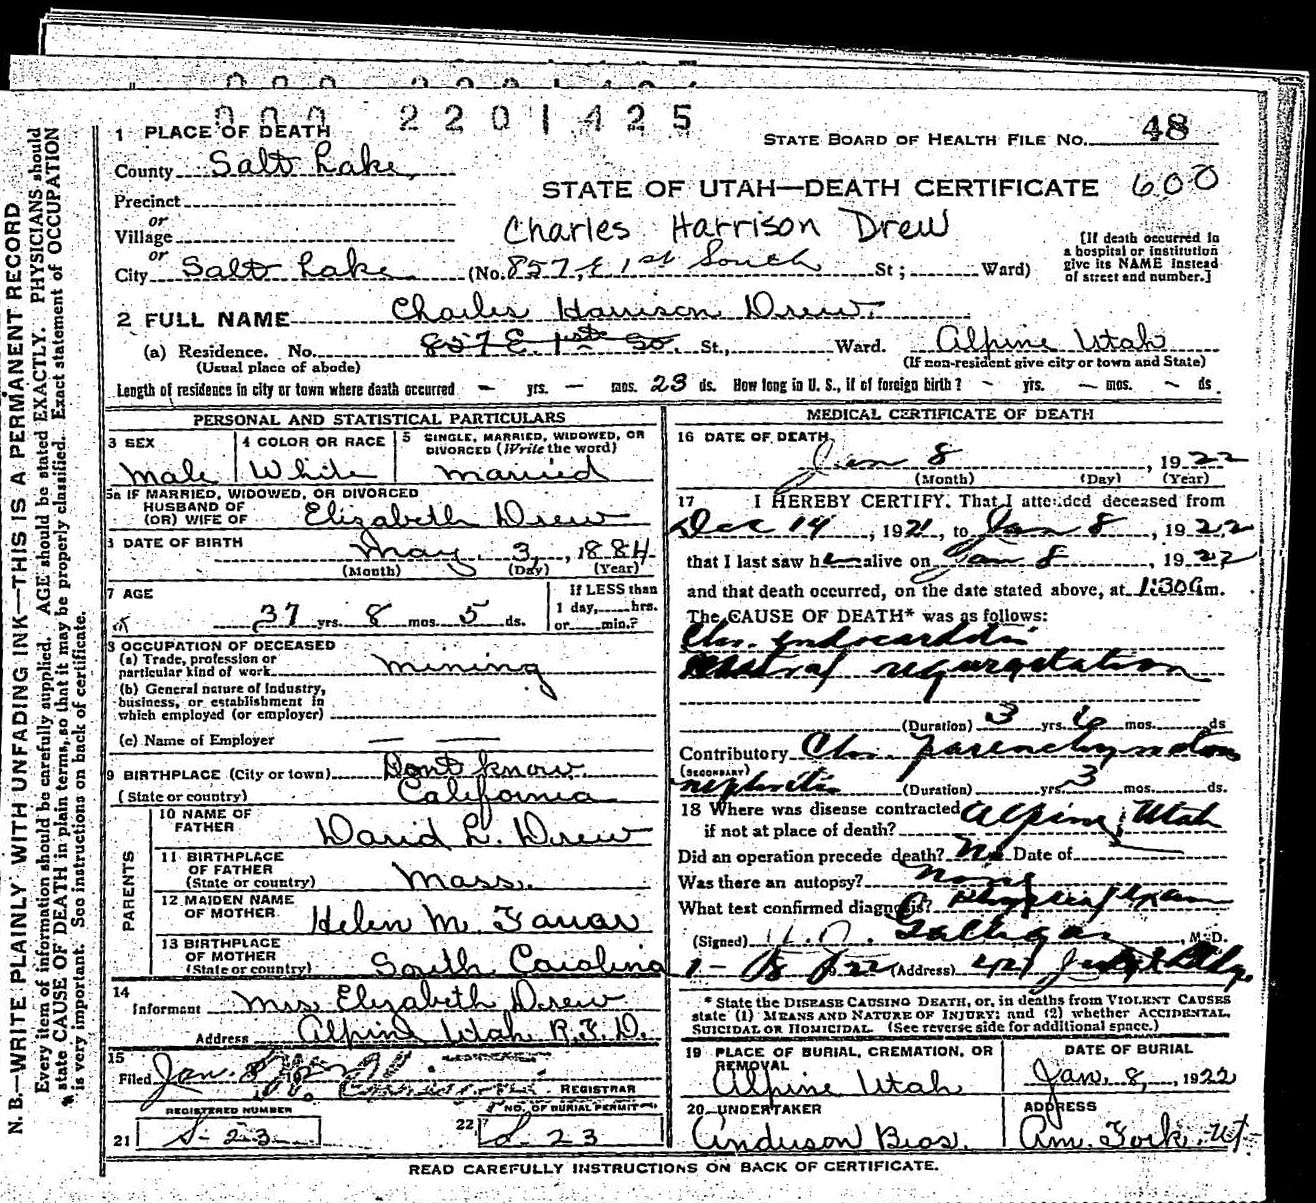 000 2201425
1 PLACE OF DEATH
STATE BOARD OF HEALTH FILE NO. 48
County Salt Lake
STATE OF UTAH—DEATH CERTIFICATE 600
Precinct
or
Village
Charles Harrison Drew
[If death occurred in a hospital or institution give its NAME instead of street and number.]
or
City Salt Lake (No. 857 E 1st South St; Ward)
2 FULL NAME Charles Harrison Drew.
(a) Residence. No. 857 E. 1st So. St., Ward. Alpine Utah
(Usual place of abode) (If non-resident give city or town and State)
Length of residence in city or town where death occurred – yrs. – mos. 23 ds. How long in U. S., if of foreign birth? – yrs. – mos. – ds
PERSONAL AND STATISTICAL PARTICULARS
3 SEX
Male
4 COLOR OR RACE
White
5 SINGLE, MARRIED, WIDOWED, OR DIVORCED (Write the word)
Married
5a IF MARRIED, WIDOWED, OR DIVORCED
HUSBAND OF
(OR) WIFE OF Elizabeth Drew
DATE OF BIRTH May 3, 1884
(Month) (Day) (Year)
7 AGE
37 yrs. 8 mos. 5 ds.
If LESS than
1 day, hrs.
or min.?
OCCUPATION OF DECEASED
(a) Trade, profession or
particular kind of work Mining
(b) General nature of industry,
business, or establishment in
which employed (or employer)
(c) Name of Employer — —
9 BIRTHPLACE (City or town) Dont know.
(State or country) California
PARENTS
10 NAME OF
FATHER David L. Drew
11 BIRTHPLACE
OF FATHER
(State or country) Mass.
12 MAIDEN NAME
OF MOTHER Helen M.
13 BIRTHPLACE
OF MOTHER
(State or country) South Carolina
14
Informant Mrs Elizabeth Drew
Address Alpine Utah R.F.D.
15
Filed Jan. 8
REGISTRAR
REGISTERED NUMBER
21 S-23
NO. OF BURIAL PERMIT
22 S-23
MEDICAL CERTIFICATE OF DEATH
16 DATE OF DEATH
Jan 8, 1922
(Month) (Day) (Year)
17 I HEREBY CERTIFY. That I attended deceased from
Dec 14, 1921, to Jan 8, 1922
that I last saw h alive on Jan 8, 1922
and that death occurred, on the date stated above, at 1:30 am.
The CAUSE OF DEATH* was as follows:
Chr. Endocarditis
Mitral regurgitation
(Duration) 3 yrs. 6 mos. ds
Contributory Chr. parenchymatous
(SECONDARY)
nephritis (Duration) yrs. 3 mos. ds.
18 Where was disease contracted
if not at place of death? Alpine, Utah
Did an operation precede death? No Date of
Was there an autopsy? None
What test confirmed diagnosis? Physical Exam
(Signed) M.D.
1-8 1922 (Address) Bldg.
* State the DISEASE CAUSING DEATH, or, in deaths from VIOLENT CAUSES
state (1) MEANS AND NATURE OF INJURY; and (2) whether ACCIDENTAL,
SUICIDAL OR HOMICIDAL. (See reverse side for additional space.)
19 PLACE OF BURIAL, CREMATION, OR
REMOVAL
Alpine Utah
DATE OF BURIAL
Jan. 8, 1922
20 UNDERTAKER
Anderson Bros.
ADDRESS
Am. Fork. Ut.
READ CAREFULLY INSTRUCTIONS ON BACK OF CERTIFICATE.
N. B.—WRITE PLAINLY WITH UNFADING INK—THIS IS A PERMANENT RECORD
Every item of information should be carefully supplied. AGE should be stated EXACTLY. PHYSICIANS should
state CAUSE OF DEATH in plain terms, so that it may be properly classified. Exact statement of OCCUPATION
is very important. See instructions on back of certificate.